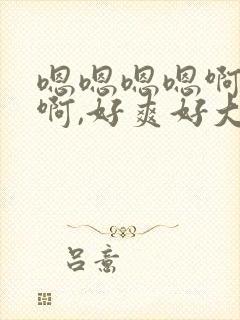 嗯嗯嗯嗯啊
啊,好爽好大
吕意